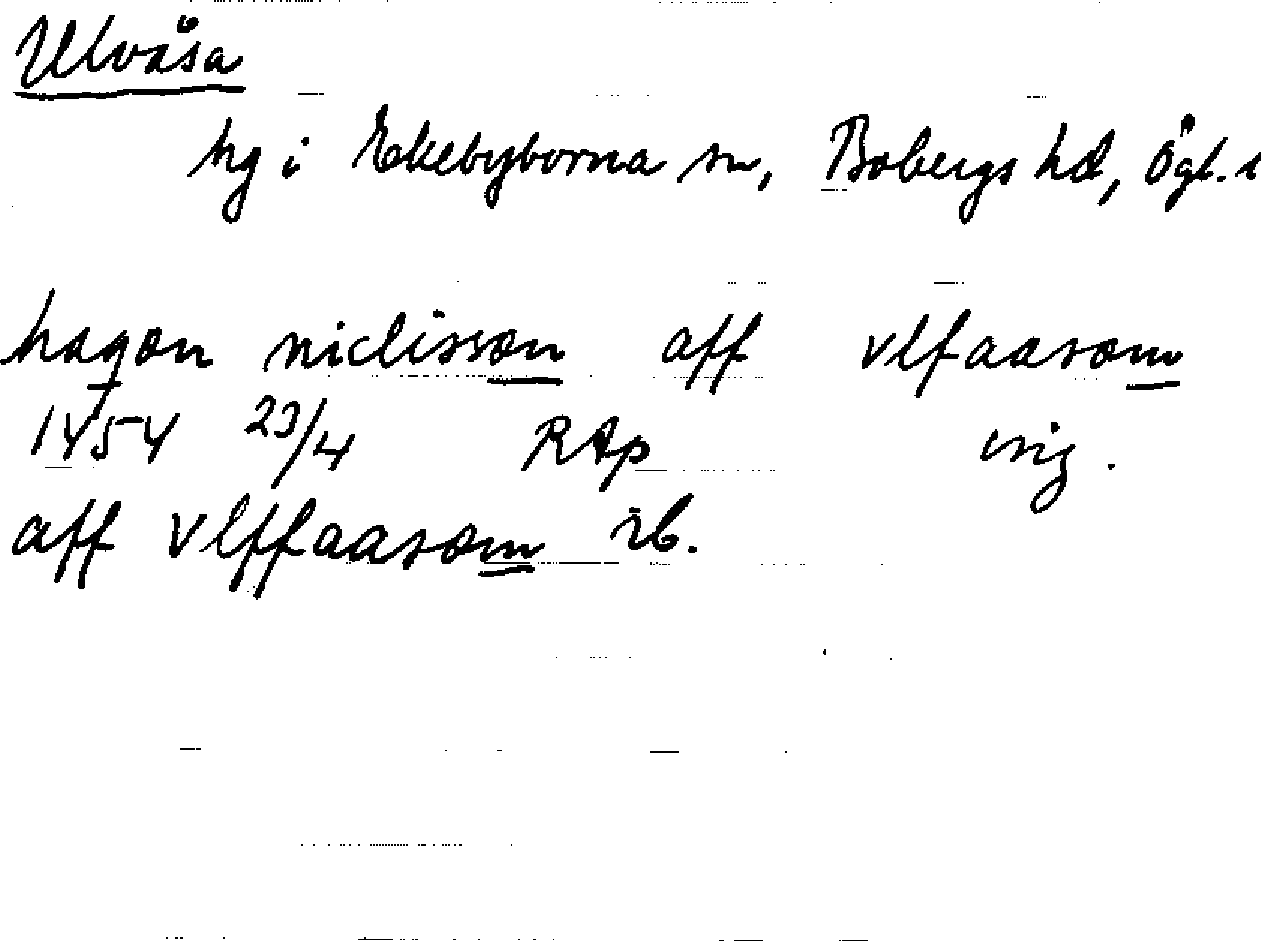 Ulvåsa
hg i Ekebyborna sn, Bobergs hd, Ögl.
haqon niclisson aff vlfaasom
1454 23/4 RAp orig.
aff vlffaasom ib.